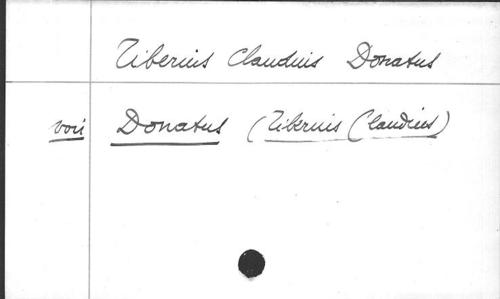 Tiberius Claudius Donatus
voir Donatus (Tiberius Claudius)